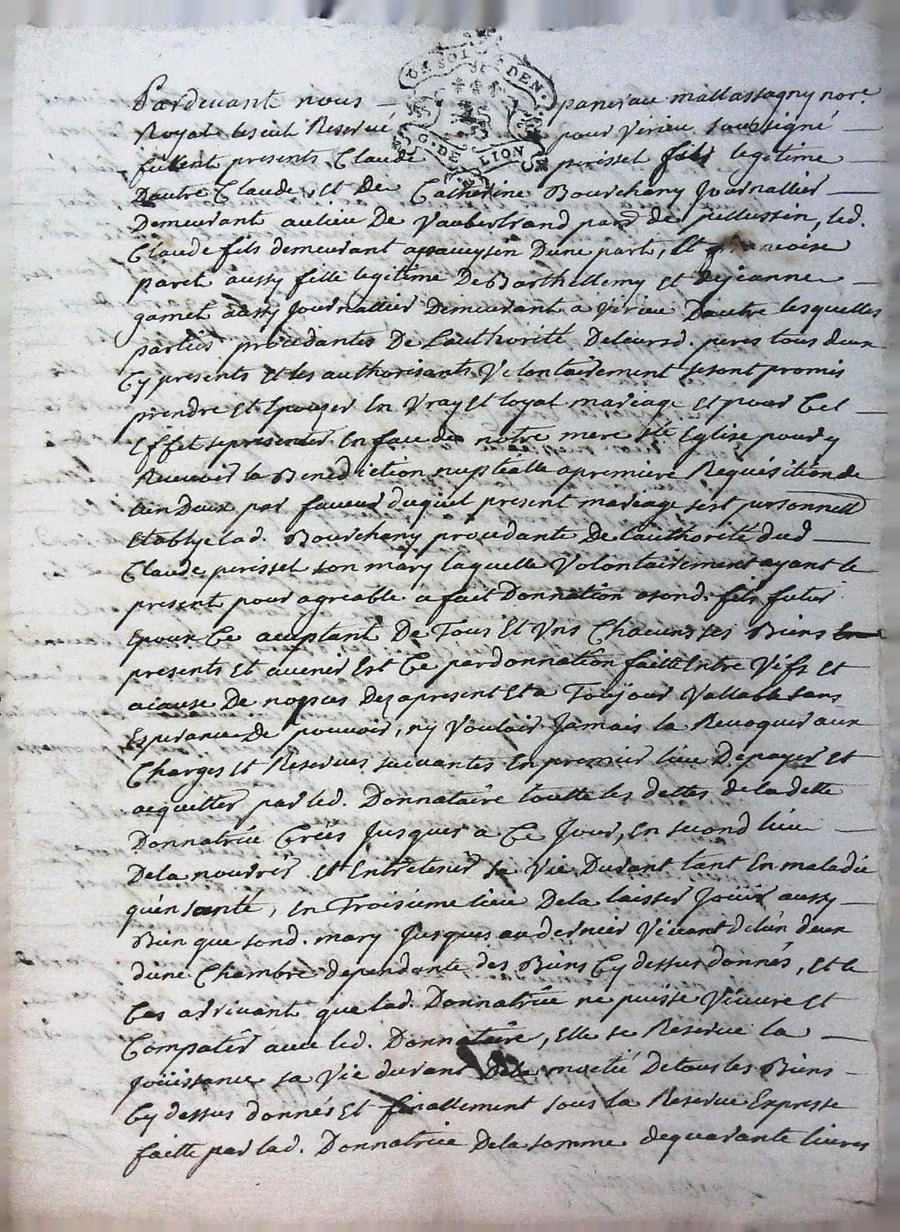 UN SOL 4 DEN
G. DE LION
Pardevant nous — mallassagny nore.
Royal le seul Reservé pour Virieu soubsigné —
fullent presents Claude perisset fils legitime
Dautre Claude, et De Catherine Bourchany Journallier —
Demeurant aulieu De Vaubertrand parr. de pellussin, led.
Claude fils demeurant dune part, Et francoise
paret aussy fille legitime De Barthellemy et de jeanne —
garnet aussy Journallier Demeurant a Virieu Dautre lesquelles
parties proceedantes De Lauthorité Deleursd. peres tous deux
Cy presents Et les authorisants Volontairement se sont promis
prendre Et Epouser En Vray Et loyal mareage Et pour Cet —
Effet se presenter En face de notre mere Ste Eglise pour y
Recevoir la Benediction nuptialle a premiere Requisition de
lun Deux par faveur duquel present mareage sest personnell
Etablye lad. Bourchany procedante De lauthorité dud —
Claude perisset son mary laquelle Volontairement ayant le
present pour agreable a fait Donnation asond. fils futur
Epoux Ce aceptant De Tous Et Uns Chacuns ses Biens
presents Et avenir Est Ce par donnation faitte Entre Vifs Et
acause De nopces Dez apresent Et a Toujour Vallable sans
Esperance De pouvoir, ny Vouloir Jamais la Revoquer aux
Charges Et Reserves suivantes En premier lieu De payer Et
acquitter par led. Donnataire toutte les dettes de ladette
Donnatrice Creés Jusques a Ce Jour, En second lieu —
Dela nourrir Et Entretenir sa Vie Durant tant En maladie
quen santé, En Troisiéme lieu Dela laisser Joüir aussy —
Bien que sond. mary Jusques au dernier Vivant delun deux
dune Chambre dependante des Biens Cy dessus donnés, Et le
Cas arrivant que lad. Donnatrice ne puisse Vivvre Et
Compatir avec led. Donnataire, Elle se Reserve la —
Joüissance sa Vie durant Dela moetié De tous les Biens —
Cy dessus donnés Et finallement sous la Reserve Expresse
faitte par lad. Donnatrice Dela somme dequarante livres